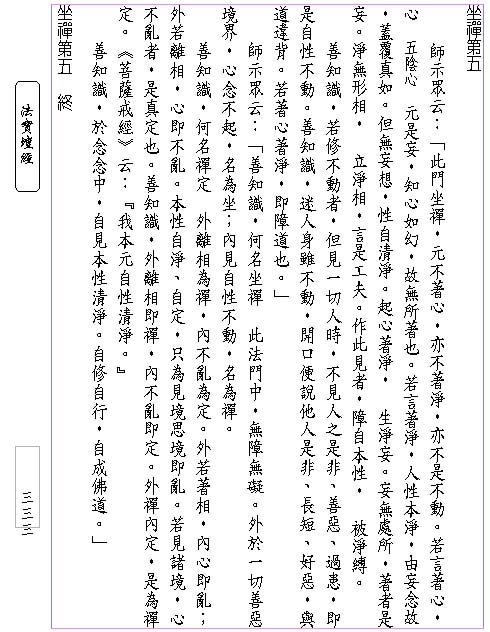 坐禪第五
師示眾云：「此門坐禪，元不著心，亦不著淨，亦不是不動。若言著心，
心　五陰心　元是妄，知心如幻，故無所著也。若言著淨，人性本淨，由妄念故
，蓋覆真如。但無妄想，性自清淨。起心著淨，　生淨妄。妄無處所，著者是
妄。淨無形相，　立淨相，言是工夫。作此見者，障自本性，　被淨縛。
善知識，若修不動者，但見一切人時，不見人之是非、善惡、過患，即
是自性不動。善知識，迷人身雖不動，開口便說他人是非、長短、好惡，與
道違背。若著心著淨，即障道也。」
師示眾云：「善知識，何名坐禪　此法門中，無障無礙。外於一切善惡
境界，心念不起，名為坐；內見自性不動，名為禪。
善知識，何名禪定　外離相為禪，內不亂為定。外若著相，內心即亂；
外若離相，心即不亂。本性自淨、自定，只為見境思境即亂。若見諸境，心
不亂者，是真定也。善知識，外離相即禪，內不亂即定。外禪內定，是為禪
定。《菩薩戒經》云：『我本元自性清淨。』
善知識，於念念中，自見本性清淨。自修自行，自成佛道。」
坐禪第五　終
法寶壇經
三三三